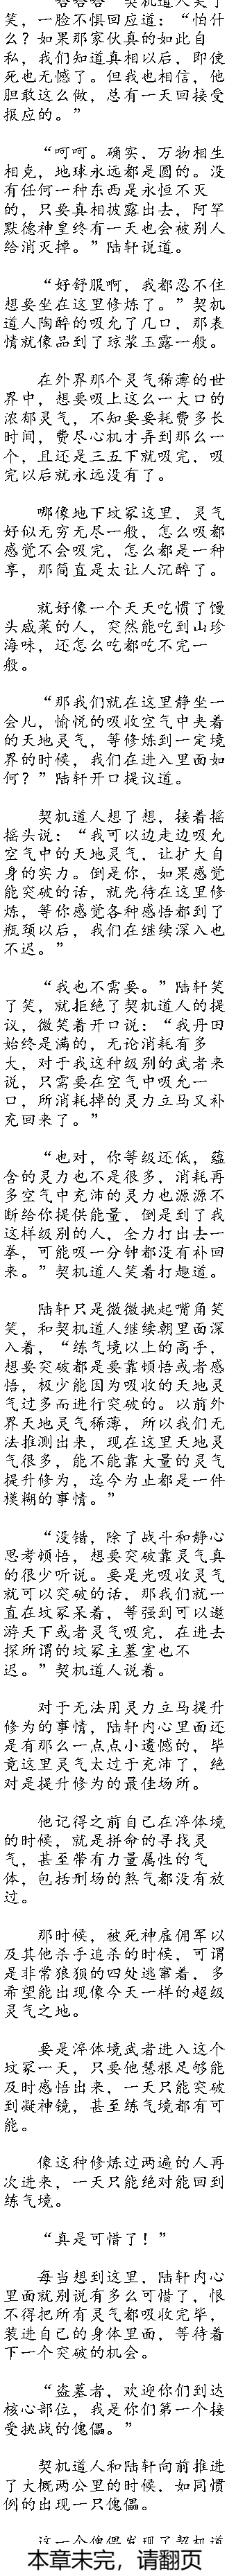 笑，一脸不惧回应道：“怕什
么？如果那家伙真的如此自
私，我们知道真相以后，即使
死也无憾了。但我也相信，他
胆敢这么做，总有一天回接受
报应的。”
“呵呵。确实，万物相生
相克，地球永远都是圆的。没
有任何一种东西是永恒不灭
的，只要真相披露出去，阿罕
默德神皇终有一天也会被别人
给消灭掉。”陆轩说道。
“好舒服啊，我都忍不住
想要坐在这里修炼了。”契机
道人陶醉的吸允了几口，那表
情就像品到了琼浆玉露一般。
在外界那个灵气稀薄的世
界中，想要吸上这么一大口的
浓郁灵气，不知要要耗费多长
时间，费尽心机才弄到那么一
个，且还是三五下就吸完，吸
完以后就永远没有了。
哪像地下坟冢这里，灵气
好似无穷无尽一般，怎么吸都
感觉不会吸完，怎么都是一种
享，那简直是太让人沉醉了。
就好像一个天天吃惯了馒
头咸菜的人，突然能吃到山珍
海味，还怎么吃都吃不完一
般。
“那我们就在这里静坐一
会儿，愉悦的吸收空气中夹着
的天地灵气，等修炼到一定境
界的时候，我们在进入里面如
何？”陆轩开口提议道。
契机道人想了想，接着摇
摇头说：“我可以边走边吸允
空气中的天地灵气，让扩大自
身的实力。倒是你，如果感觉
能突破的话，就先待在这里修
炼，等你感觉各种感悟都到了
瓶颈以后，我们在继续深入也
不迟。”
“我也不需要。”陆轩笑
了笑，就拒绝了契机道人的提
议，微笑着开口说：“我丹田
始终是满的，无论消耗有多
大，对于我这种级别的武者来
说，只需要在空气中吸允一
口，所消耗掉的灵力立马又补
充回来了。”
“也对，你等级还低，蕴
含的灵力也不是很多，消耗再
多空气中充沛的灵力也源源不
断给你提供能量，倒是到了我
这样级别的人，全力打出去一
拳，可能吸一分钟都没有补回
来。”契机道人笑着打趣道。
陆轩只是微微挑起嘴角笑
笑，和契机道人继续朝里面深
入着，“练气境以上的高手，
想要突破都是要靠顿悟或者感
悟，极少能因为吸收的天地灵
气过多而进行突破的。以前外
界天地灵气稀薄，所以我们无
法推测出来，现在这里天地灵
气很多，能不能靠大量的灵气
提升修为，迄今为止都是一件
模糊的事情。”
“没错，除了战斗和静心
思考顿悟，想要突破靠灵气真
的很少听说。要是光吸收灵气
就可以突破的话，那我们就一
直在坟冢呆着，等强到可以遨
游天下或者灵气吸完，在进去
探所谓的坟冢主墓室也不
迟。”契机道人说着。
对于无法用灵力立马提升
修为的事情，陆轩内心里面还
是有那么一点点小遗憾的，毕
竟这里灵气太过于充沛了，绝
对是提升修为的最佳场所。
他记得之前自己在淬体境
的时候，就是拼命的寻找灵
气，甚至带有力量属性的气
体，包括刑场的煞气都没有放
过。
那时候，被死神雇佣军以
及其他杀手追杀的时候，可谓
是非常狼狈的四处逃窜着，多
希望能出现像今天一样的超级
灵气之地。
要是淬体境武者进入这个
坟冢一天，只要他慧根足够能
及时感悟出来，一天只能突破
到凝神镜，甚至练气境都有可
能。
像这种修炼过两遍的人再
次进来，一天只能绝对能回到
练气境。
“真是可惜了！”
每当想到这里，陆轩内心
里面就别说有多么可惜了，恨
不得把所有灵气都吸收完毕，
装进自己的身体里面，等待着
下一个突破的机会。
“盗墓者，欢迎你们到达
核心部位，我是你们第一个接
受挑战的傀儡。”
契机道人和陆轩向前推进
了大概两公里的时候，如同惯
例的出现一只傀儡。
本章未完，请翻页